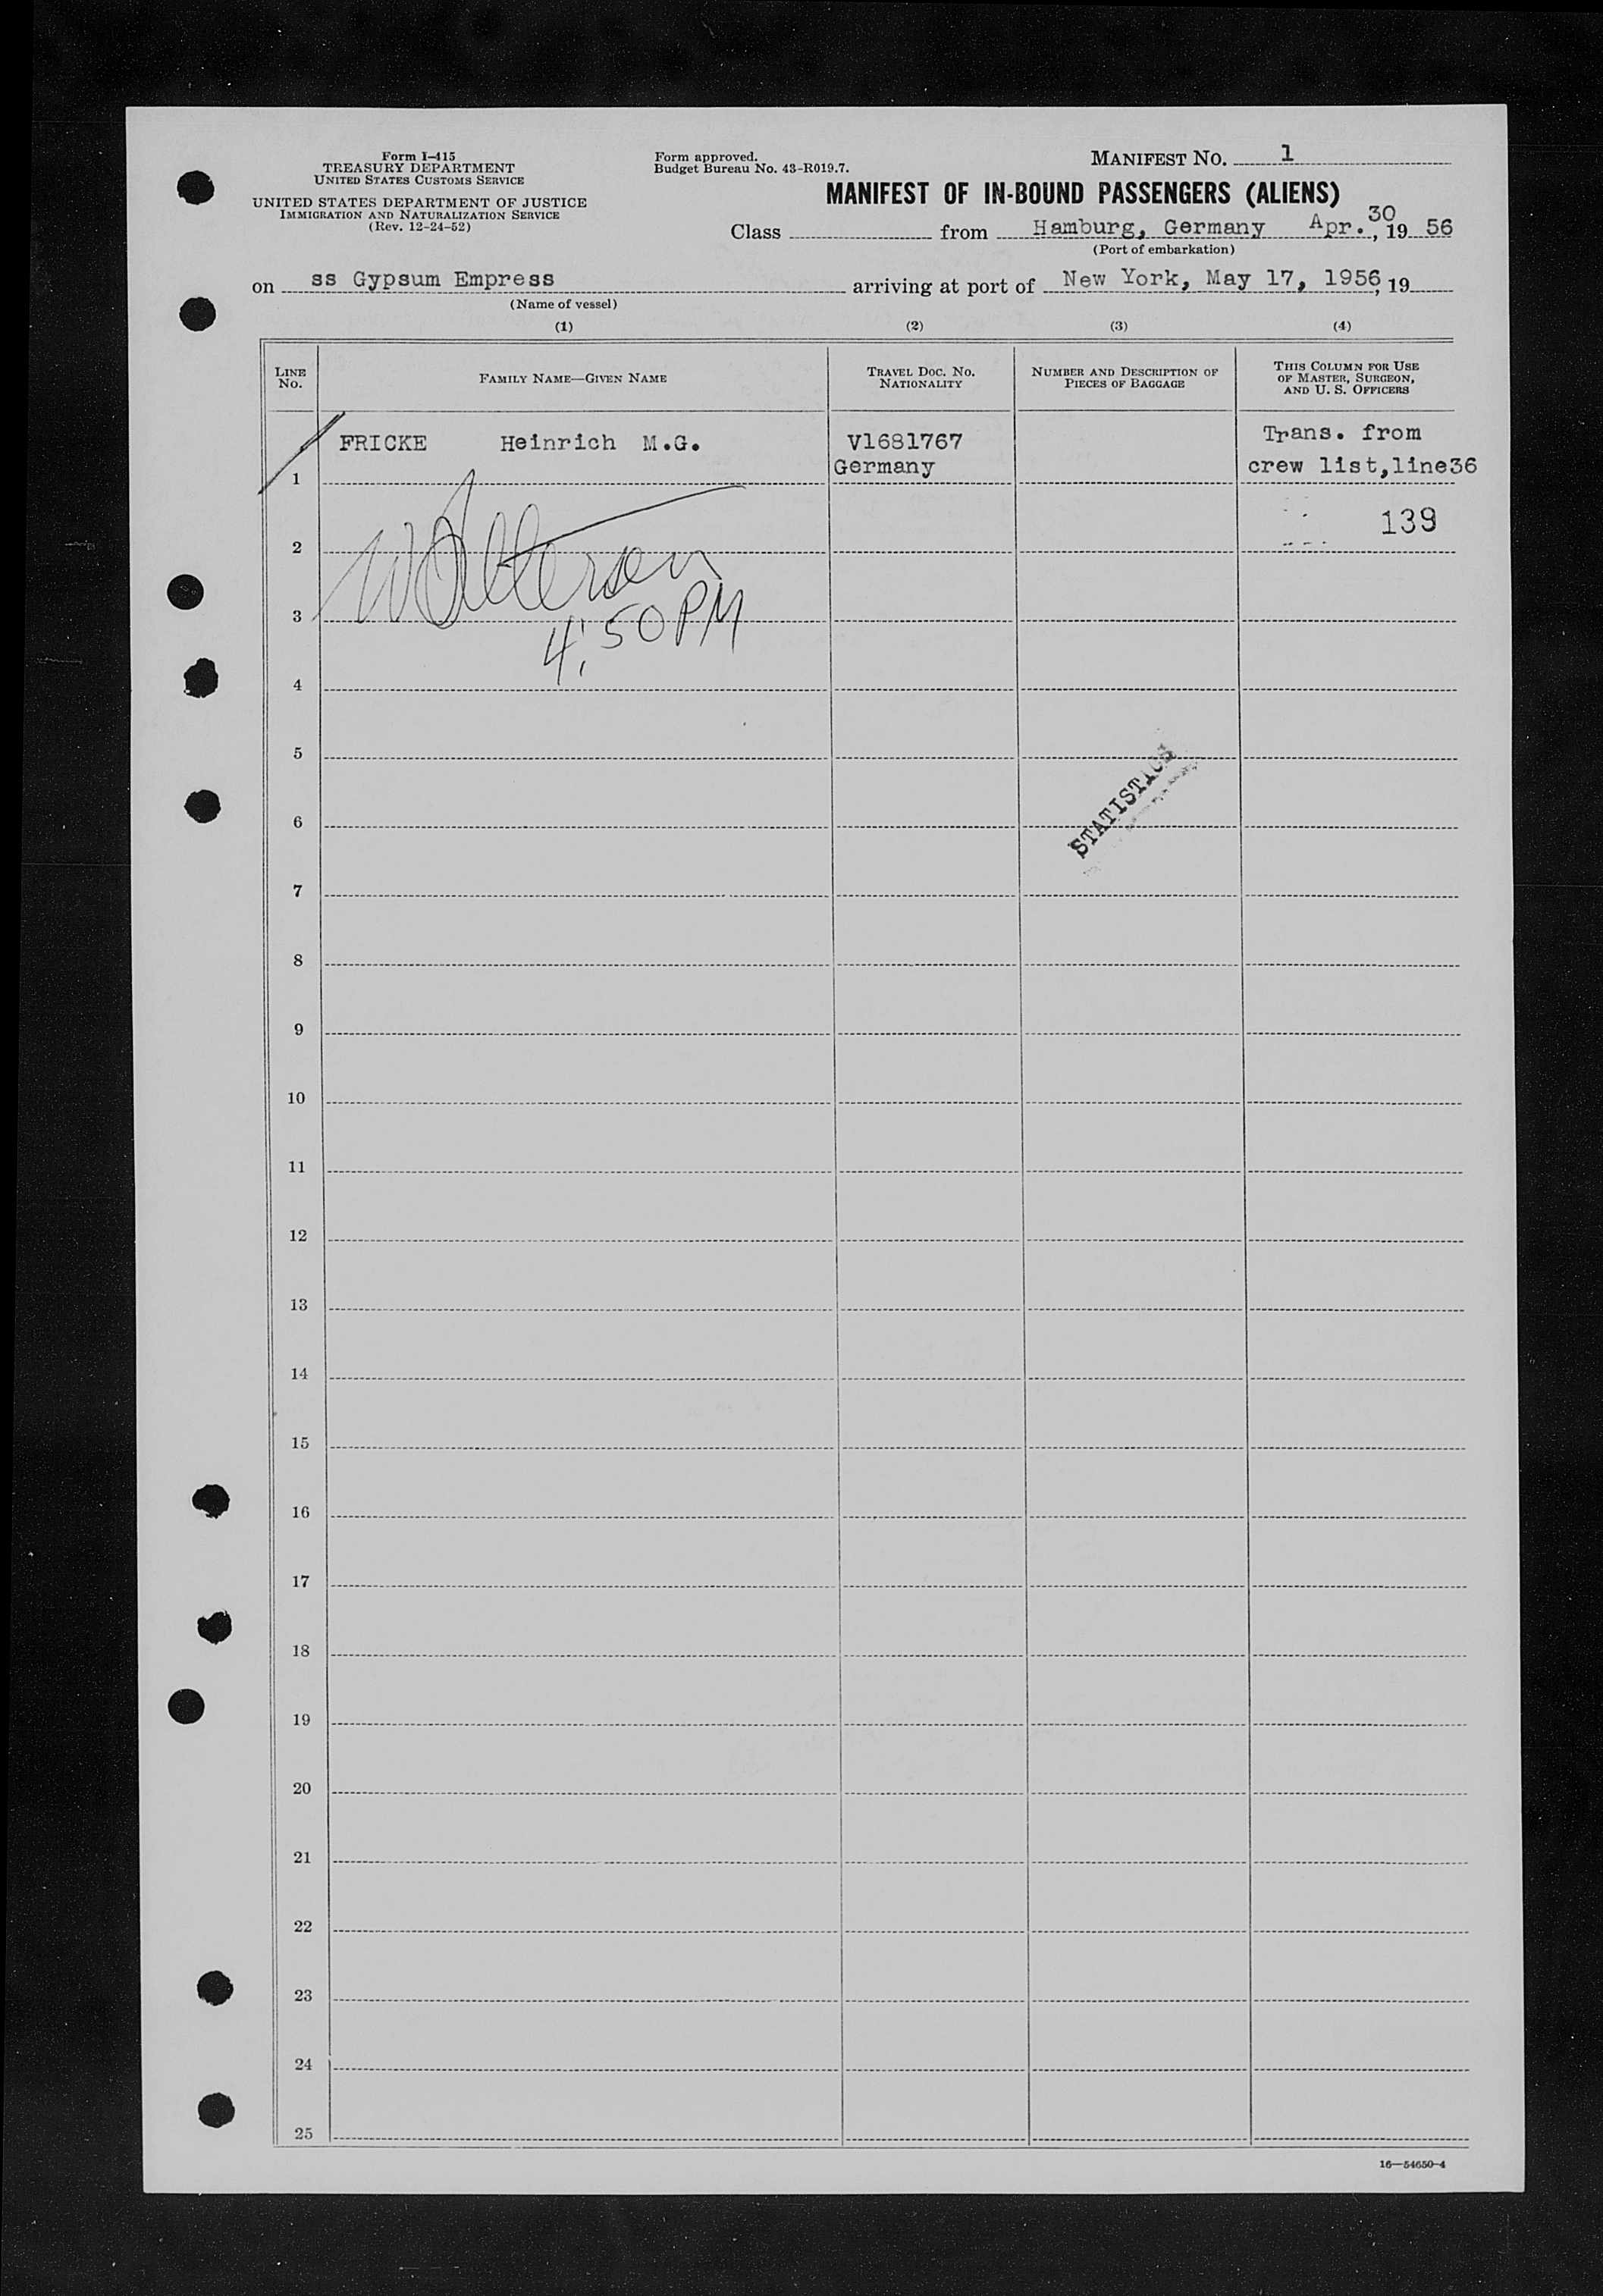 Form I-415
TREASURY DEPARTMENT
UNITED STATES CUSTOMS SERVICE
UNITED STATES DEPARTMENT OF JUSTICE
IMMIGRATION AND NATURALIZATION SERVICE
(Rev. 12-24-52)
Form approved.
Budget Bureau No. 43-R019.7.
MANIFEST NO. 1
MANIFEST OF IN-BOUND PASSENGERS (ALIENS)
Class from Hamburg, Germany Apr. 30, 19 56
(Port of embarkation)
on ss Gypsum Empress arriving at port of New York, May 17, 1956, 19
(Name of vessel)
(1) (2) (3) (4)
LINE NO.
FAMILY NAME—GIVEN NAME
TRAVEL DOC. NO.
NATIONALITY
NUMBER AND DESCRIPTION OF
PIECES OF BAGGAGE
THIS COLUMN FOR USE
OF MASTER, SURGEON,
AND U. S. OFFICERS
FRICKE Heinrich M.G. V1681767 Trans. from
1 Germany crew list,line36
139
2
3
4:50 PM
4
5
STATISTICS
6
7
8
9
10
11
12
13
14
15
16
17
18
19
20
21
22
23
24
25
16—54650-4